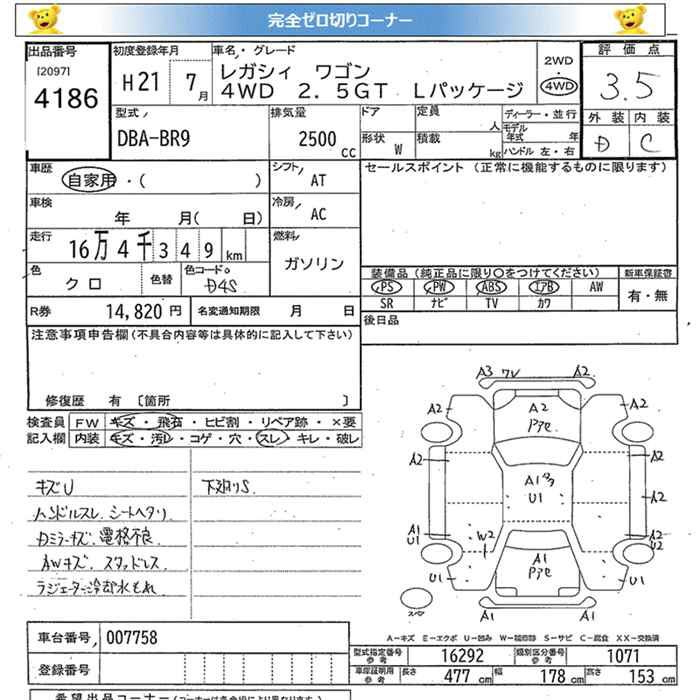 完全ゼロ切りコーナー
出品番号 初度登録年月 車名・グレード 2WD 評価点
[2097] H21 7月 レガシィ ワゴン 4WD 3.5
4186 4WD 2.5GT Lパッケージ
型式 排気量 ドア 定員 人 ディーラー・並行 外装 内装
DBA-BR9 2500cc 形状 W 積載 kg モデル年式 年 D C
ハンドル 左・右
車歴 自家用・( ) シフト AT セールスポイント (正常に機能するものに限ります)
車検 年 月( 日) 冷房 AC
走行 16万4千349km 燃料 ガソリン
色 クロ 色替 色コード D4S 装備品 (純正品に限り○をつけてください) 新車保証書
PS PW ABS エアB AW 有・無
R券 14,820円 名変通知期限 月 日 SR ナビ TV カワ
注意事項申告欄(不具合内容等は具体的に記入して下さい) 後日品
修復歴 有 [箇所 ]
検査員 FW キズ・飛石・ヒビ割・リペア跡・×要
記入欄 内装 キズ・汚レ・コゲ・穴・スレ・キレ・破レ
キズU 下廻りS
ハンドルスレ、シートヘタリ
Dミラーキズ、電格不良
AWキズ、スタッドレス
ラジエーター冷却水もれ
A3 ワレ A2
A2 A2 A2
Pアセ
A2 A2
A1
U1
A2
A1 W2 A2
U1 U2
A1
U1 Pアセ U1
A1 A1
A-キズ E-エクボ U-凹み W-補修跡 S-サビ C-腐食 XX-交換済
車台番号 007758 型式指定番号 参考 16292 類別区分番号 参考 1071
登録番号 車庫証明用 参考 長さ 477cm 幅 178cm 高さ 153cm
希望出品コーナー